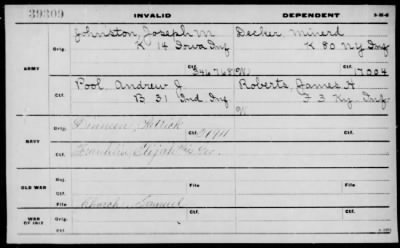 39309 INVALID DEPENDENT
ARMY
Orig. Johnston, Joseph M Decker, Minerd
K 14 Iowa Inf K 80 NY Inf
Ctf. 346768 W Ctf. 17004
Pool, Andrew J Roberts, James H
B 31 Ind. Inf F 3 Ky. Inf
W
NAVY
Orig. Patrick Ctf.
Ctf. Franklin, Elijah
OLD WAR
File File
Church, Samuel
WAR OF 1812
Ctf. Ctf.